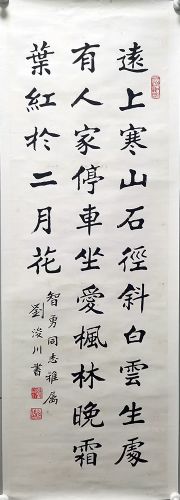 遠上寒山石徑斜白雲生處
有人家停車坐愛楓林晚霜
葉紅於二月花
智勇同志雅屬
劉浚川書